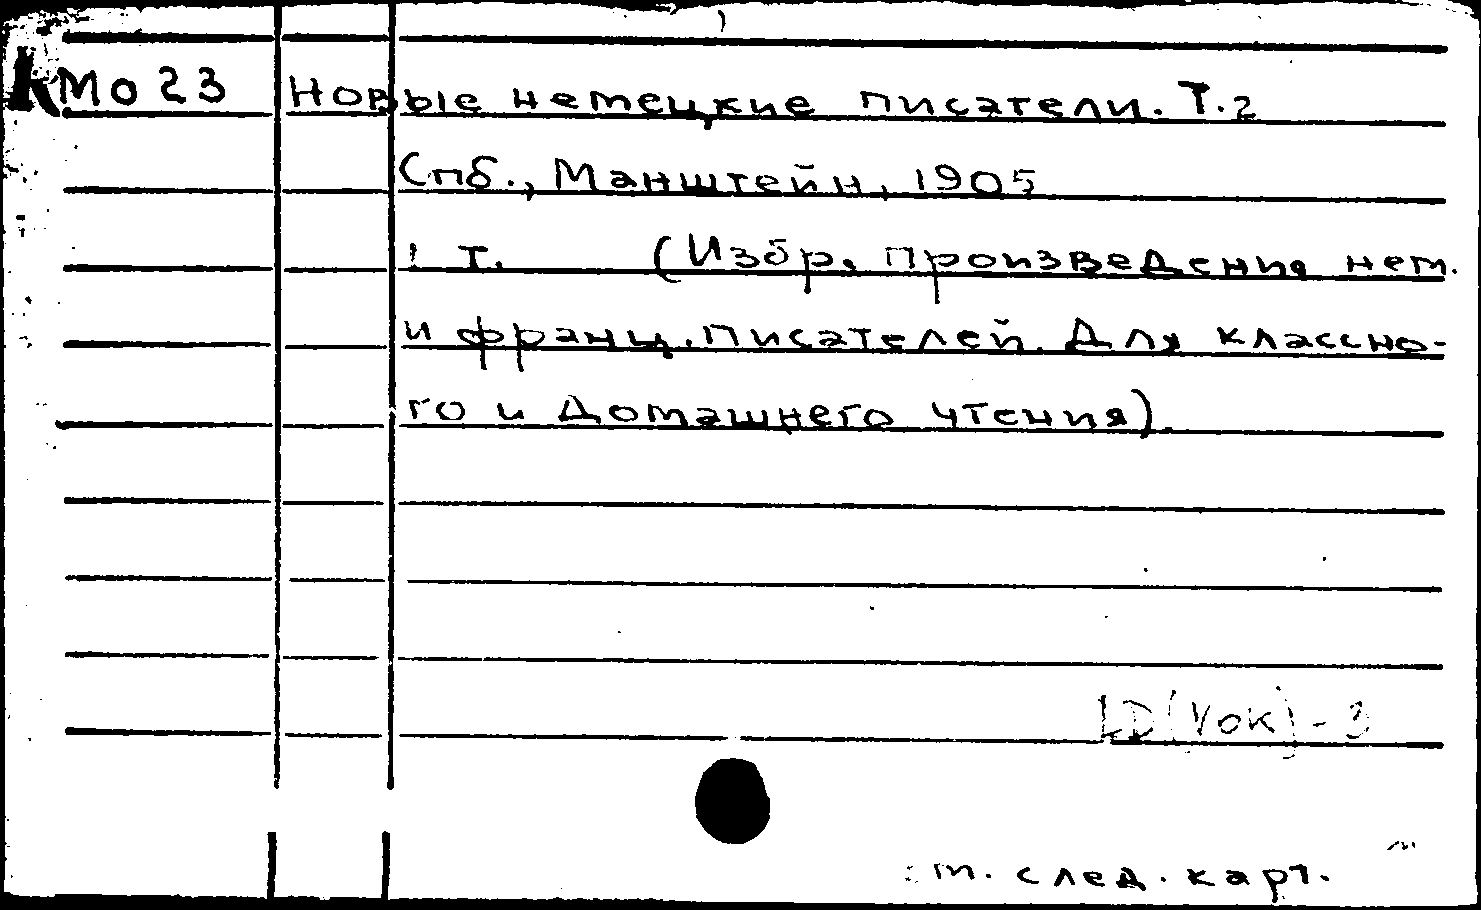 Мо 23 Новые немецкие писатели. Т. 2
Спб., Манштейн, 1905
1 т. (Избр. произведения нем.
и франц. писателей. Для классно-
го и домашнего чтения).
LD(Vok)-3
см. след. карт.